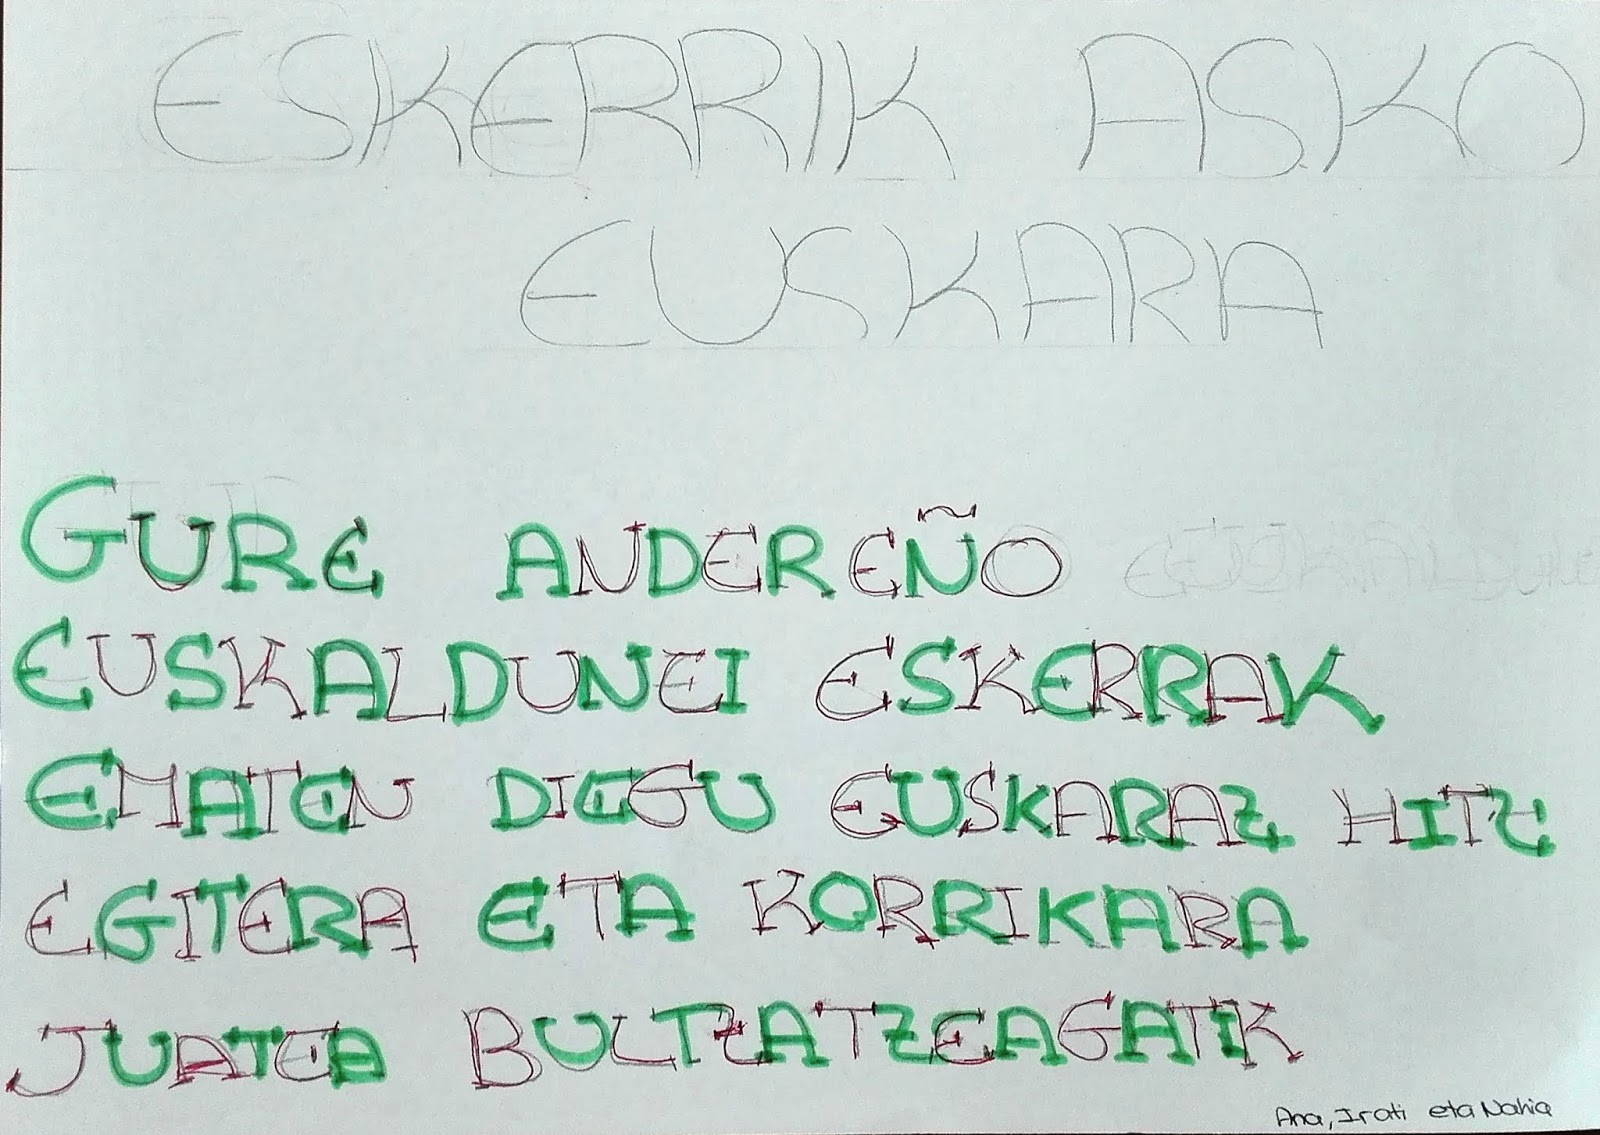 ESKERRIK ASKO
EUSKARA
GURE ANDEREÑO
EUSKALDUNEI ESKERRAK
EMATEN DIEGU EUSKARAZ HITZ
EGITERA ETA KORRIKARA
JUATEA BULTZATZEAGATIK
Ana, Irati eta Nahia